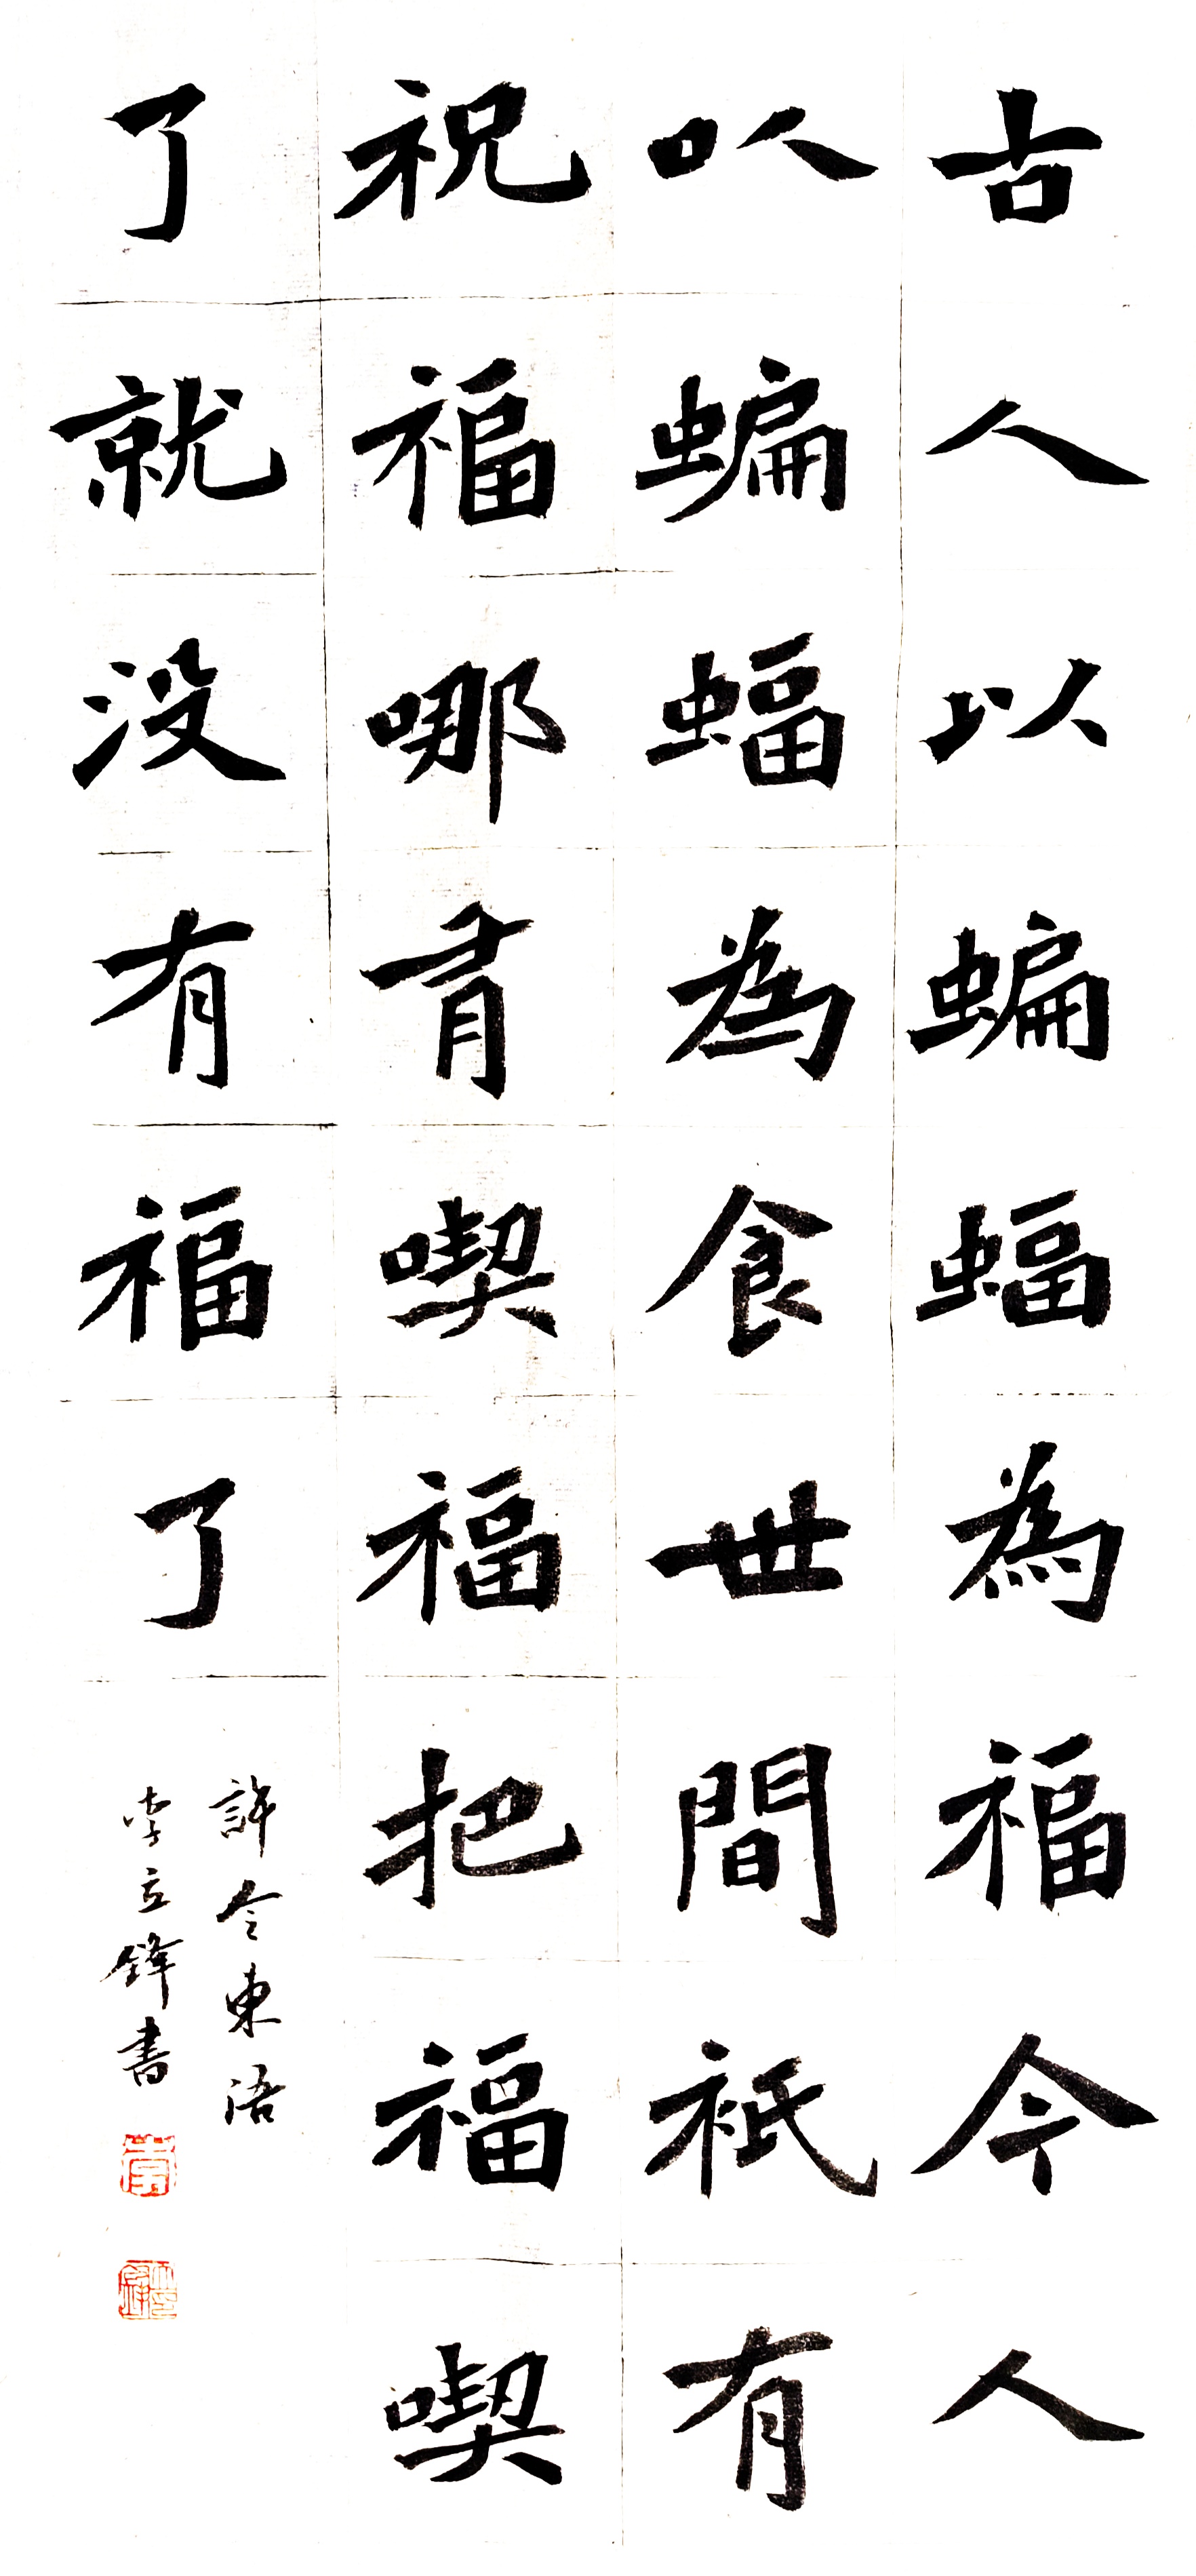 古人以蝙蝠為福今人
以蝙蝠為食世間祇有
祝福哪有喫福把福喫
了就没有福了
許今東語
李立鋒書